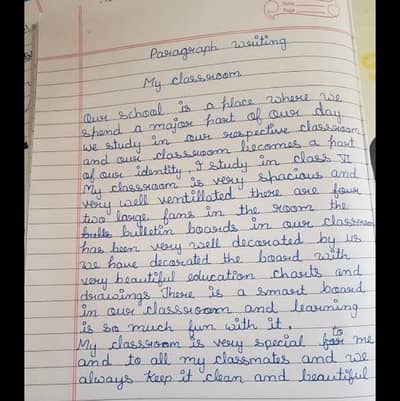 Paragraph writing
My classroom
Our school is a place where we
spend a major part of our day
we study in our respective classroom
and our classroom becomes a part
of our identity. I study in class VI
My classroom is very spacious and
very well ventillated there are four
two large fans in the room the
bulletin boards in our classroom
has been very well decorated by us
we have decorated the board with
very beautiful education charts and
drawings. There is a smart board
in our classroom and learning
is so much fun with it.
My classroom is very special to me
and to all my classmates and we
always keep it clean and beautiful